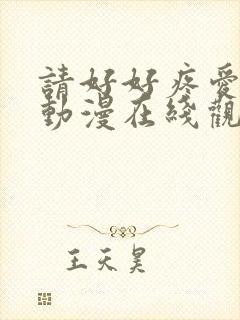 請好好疼愛
動漫在綫觀
王天昊